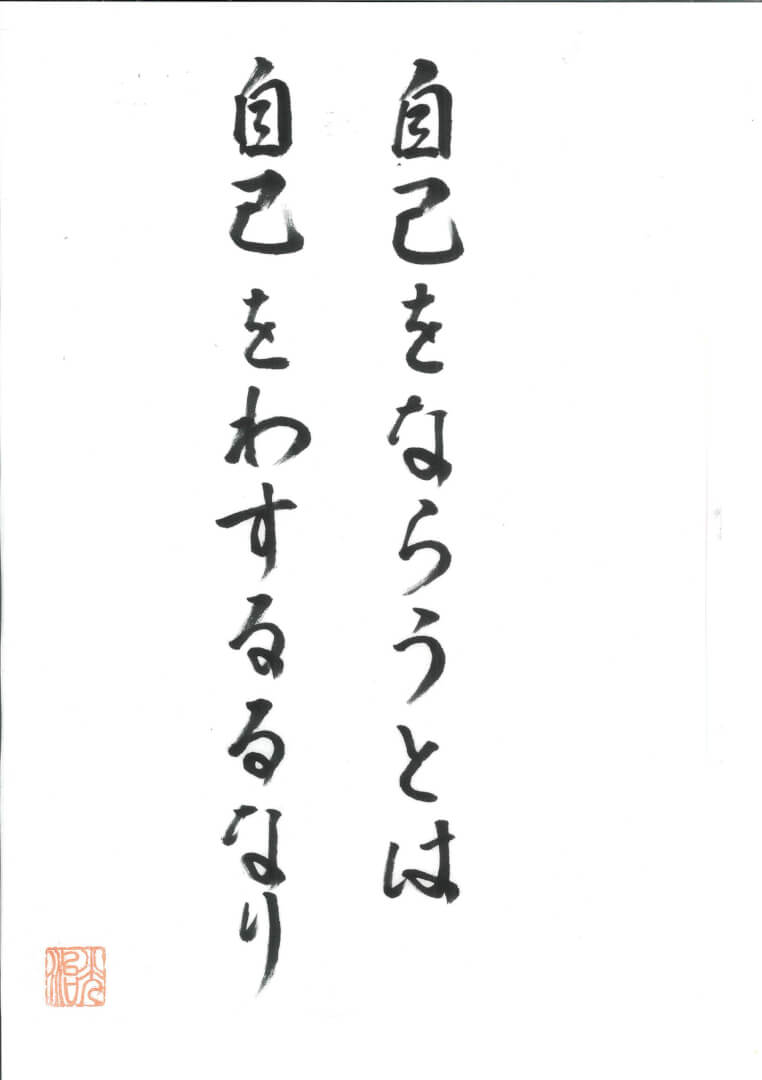 自己をならうとは
自己をわするるなり